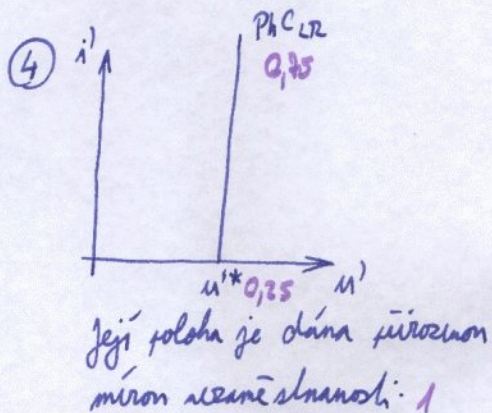 ④
i'
PhC LR
0,75
u'* 0,25 u'
Její poloha je dána přirozenou
mírou nezaměstnanosti. 1